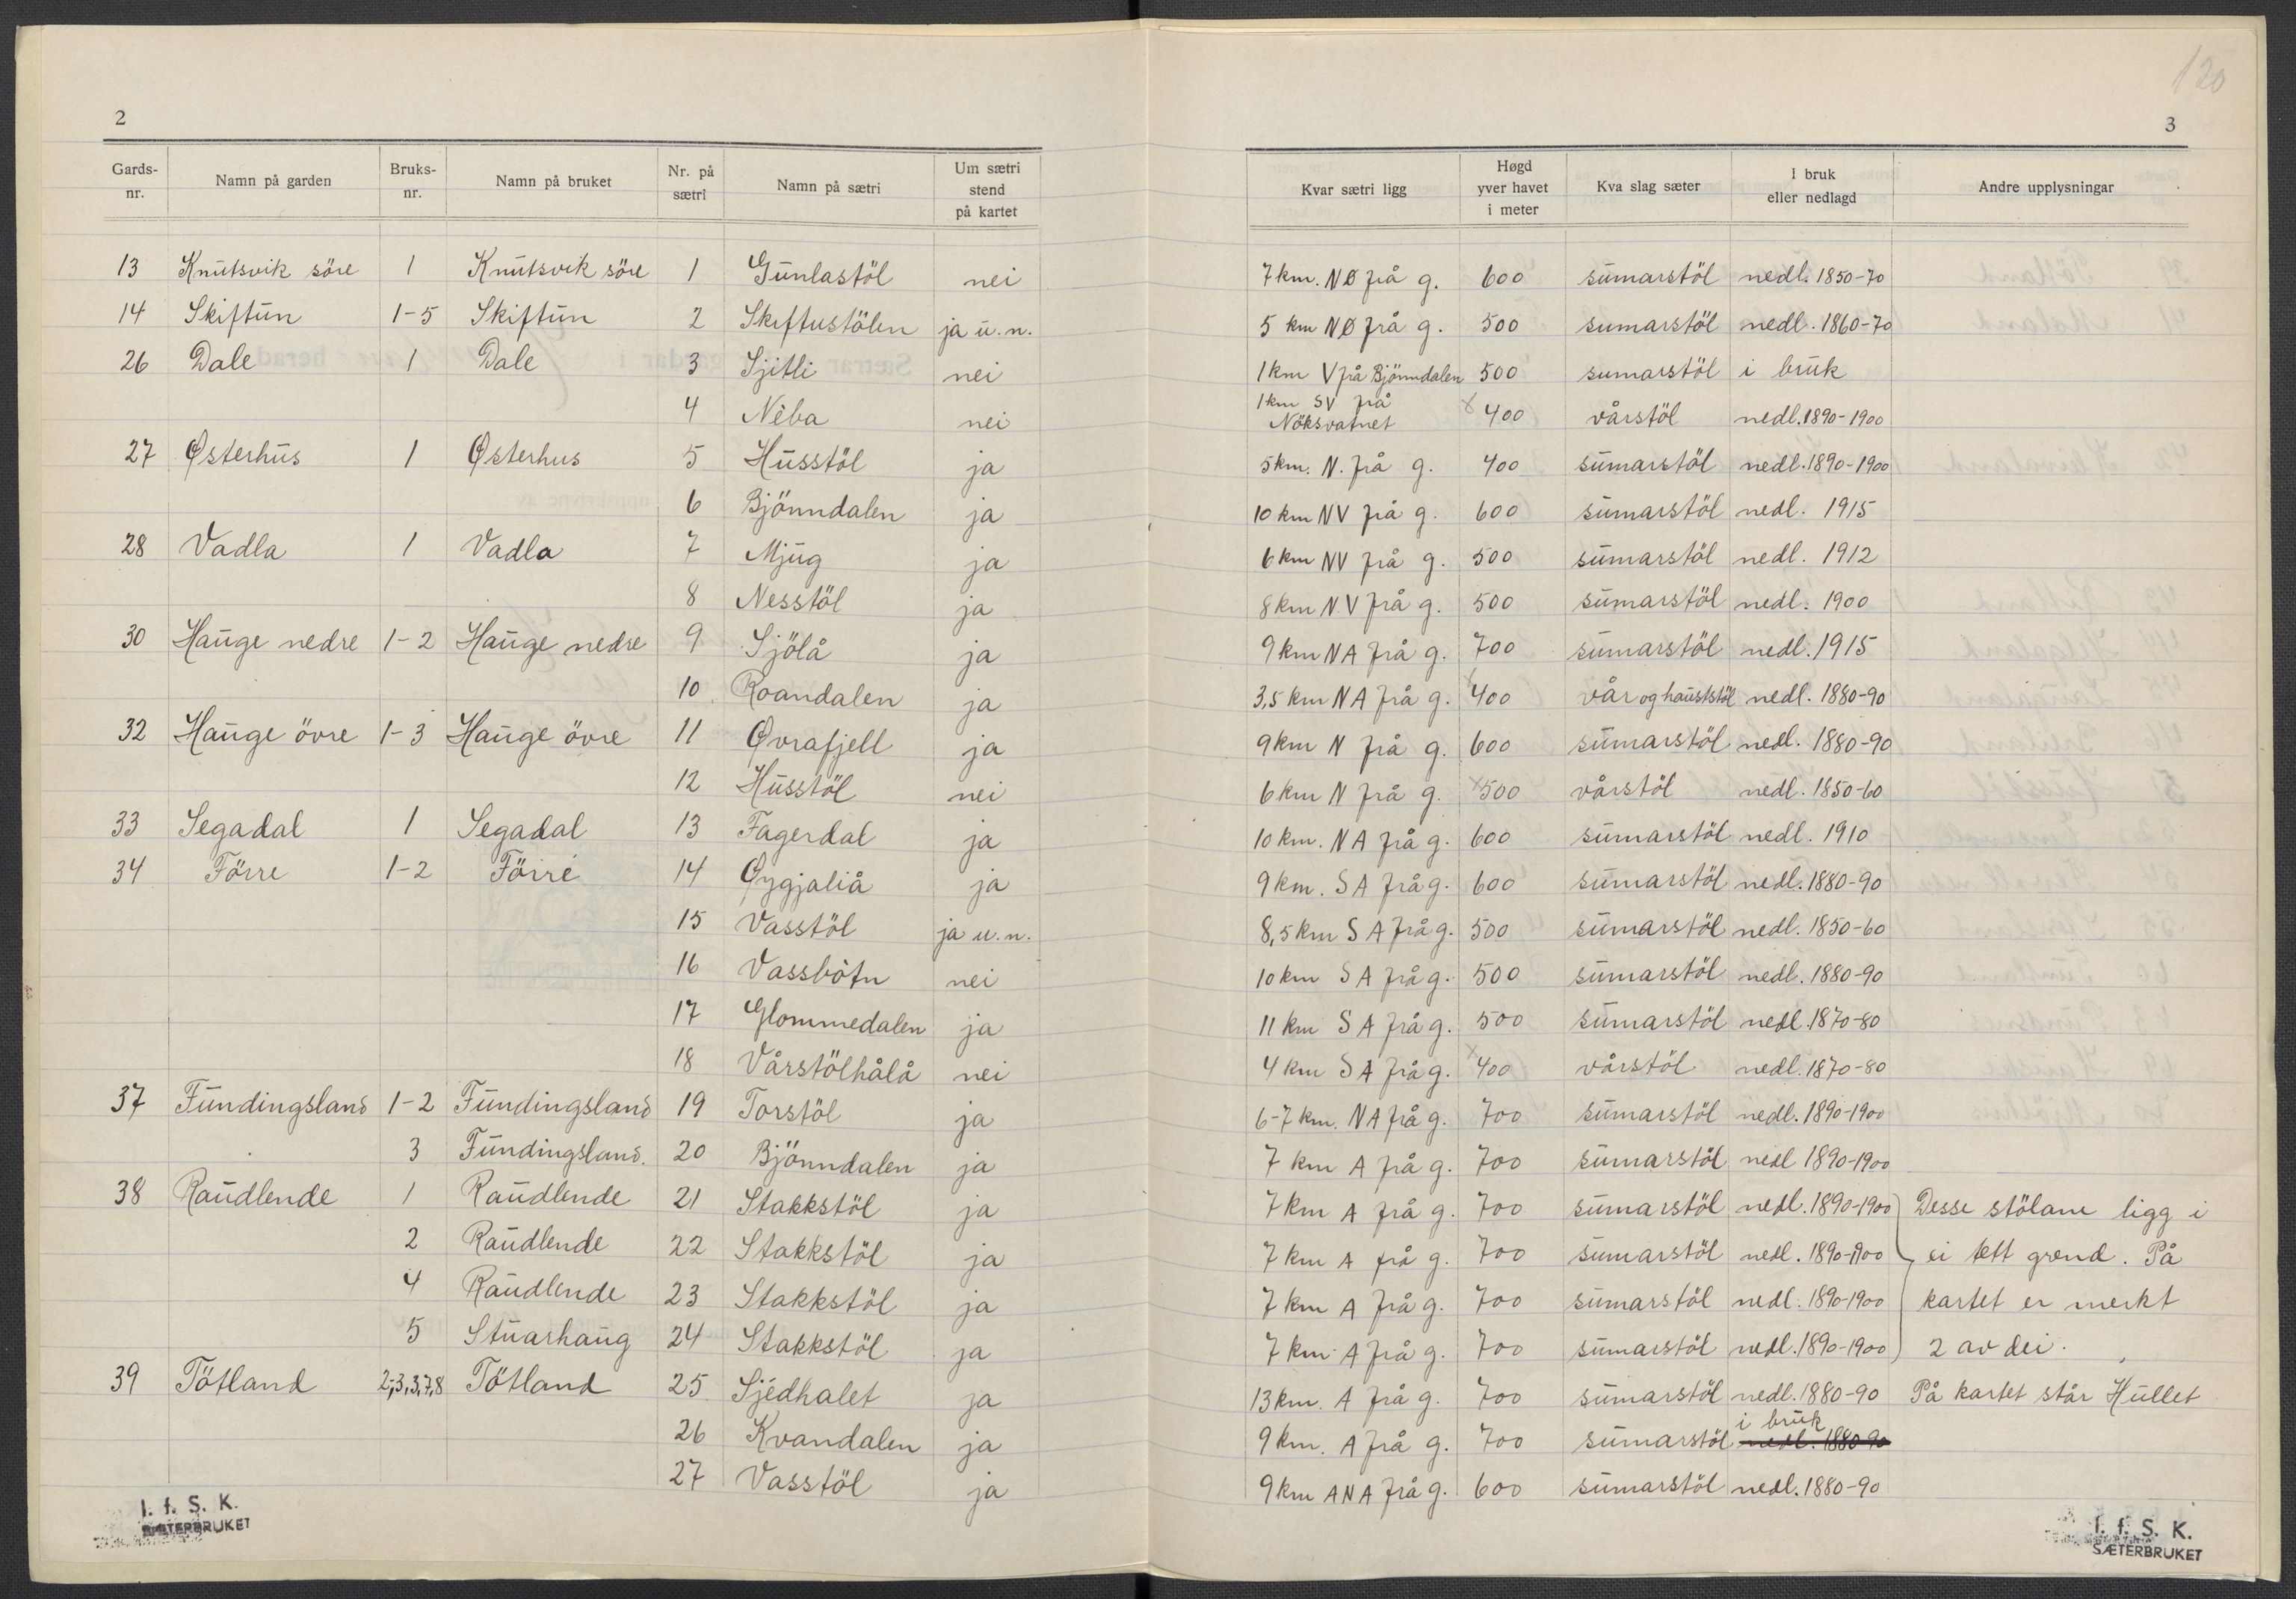 120
2
3
Gards-nr. Namn på garden Bruks-nr. Namn på bruket Nr. på sætri Namn på sætri Um sætri stend på kartet Kvar sætri ligg Høgd yver havet i meter Kva slag sæter I bruk eller nedlagd Andre upplysningar
13 Knutsvik söre 1 Knutsvik söre 1 Gunlastöl nei 7 km. NØ frå g. 600 sumarstöl nedl. 1850-70
14 Skiftun 1-5 Skiftun 2 Skiftustölen ja u.n. 5 km NØ frå g. 500 sumarstöl nedl. 1860-70
26 Dale 1 Dale 3 Sjitli nei 1 km V frå Bjönndalen 500 sumarstöl i bruk
4 Nèba nei 1 km SV frå Nöksvatnet x 400 vårstöl nedl. 1890-1900
27 Østerhus 1 Østerhus 5 Husstöl ja 5 km. N. frå g. 400 sumarstöl nedl. 1890-1900
6 Bjönndalen ja 10 km NV frå g. 600 sumarstöl nedl. 1915
28 Vadla 1 Vadla 7 Mjug ja 6 km NV frå g. 500 sumarstöl nedl. 1912
8 Nesstöl ja 8 km NV frå g. 500 sumarstöl nedl. 1900
30 Hauge nedre 1-2 Hauge nedre 9 Sjölå ja 9 km NA frå g. 700 sumarstöl nedl. 1915
10 Roandalen ja 3,5 km NA frå g. x 400 vår og hauststöl nedl. 1880-90
32 Hauge övre 1-3 Hauge övre 11 Øvrafjell ja 9 km N frå g. 600 sumarstöl nedl. 1880-90
12 Husstöl nei 6 km N frå g. x 500 vårstöl nedl. 1850-60
33 Segadal 1 Segadal 13 Fagerdal ja 10 km. NA frå g. 600 sumarstöl nedl. 1910
34 Förre 1-2 Förre 14 Øygjaliå ja 9 km. SA frå g. 600 sumarstöl nedl. 1880-90
15 Vasstöl ja u.n. 8,5 km SA frå g. 500 sumarstöl nedl. 1850-60
16 Vassbòtn nei 10 km SA frå g. 500 sumarstöl nedl. 1880-90
17 Glommedalen ja 11 km SA frå g. 500 sumarstöl nedl. 1870-80
18 Vårstölhålå nei 4 km SA frå g. x 400 vårstöl nedl. 1870-80
37 Fundingsland 1-2 Fundingsland 19 Torstöl ja 6-7 km. NA frå g. 700 sumarstöl nedl. 1890-1900
3 Fundingsland. 20 Bjönndalen ja 7 km A frå g. 700 sumarstöl nedl 1890-1900
38 Raudlende 1 Raudlende 21 Stakkstöl ja 7 km A frå g. 700 sumarstöl nedl. 1890-1900 Desse stölane ligg i
2 Raudlende 22 Stakkstöl ja 7 km A frå g. 700 sumarstöl nedl. 1890-1900 ei tett grend. På
4 Raudlende 23 Stakkstöl ja 7 km A frå g. 700 sumarstöl nedl. 1890-1900 kartet er merkt
5 Stuarhaug 24 Stakkstöl ja 7 km A frå g. 700 sumarstöl nedl. 1890-1900 2 av dei.
39 Tötland 2,3,3,7,8 Tötland 25 Sjèdhalet ja 13 km. A frå g. 700 sumarstöl nedl. 1880-90 På kartet står Hullet
26 Kvandalen ja 9 km. A frå g. 700 sumarstöl i bruk nedl. 1880-90
27 Vasstöl ja 9 km ANA frå g. 600 sumarstöl nedl. 1880-90
I. f. S. K.
SÆTERBRUKET
I. f. S. K.
SÆTERBRUKET